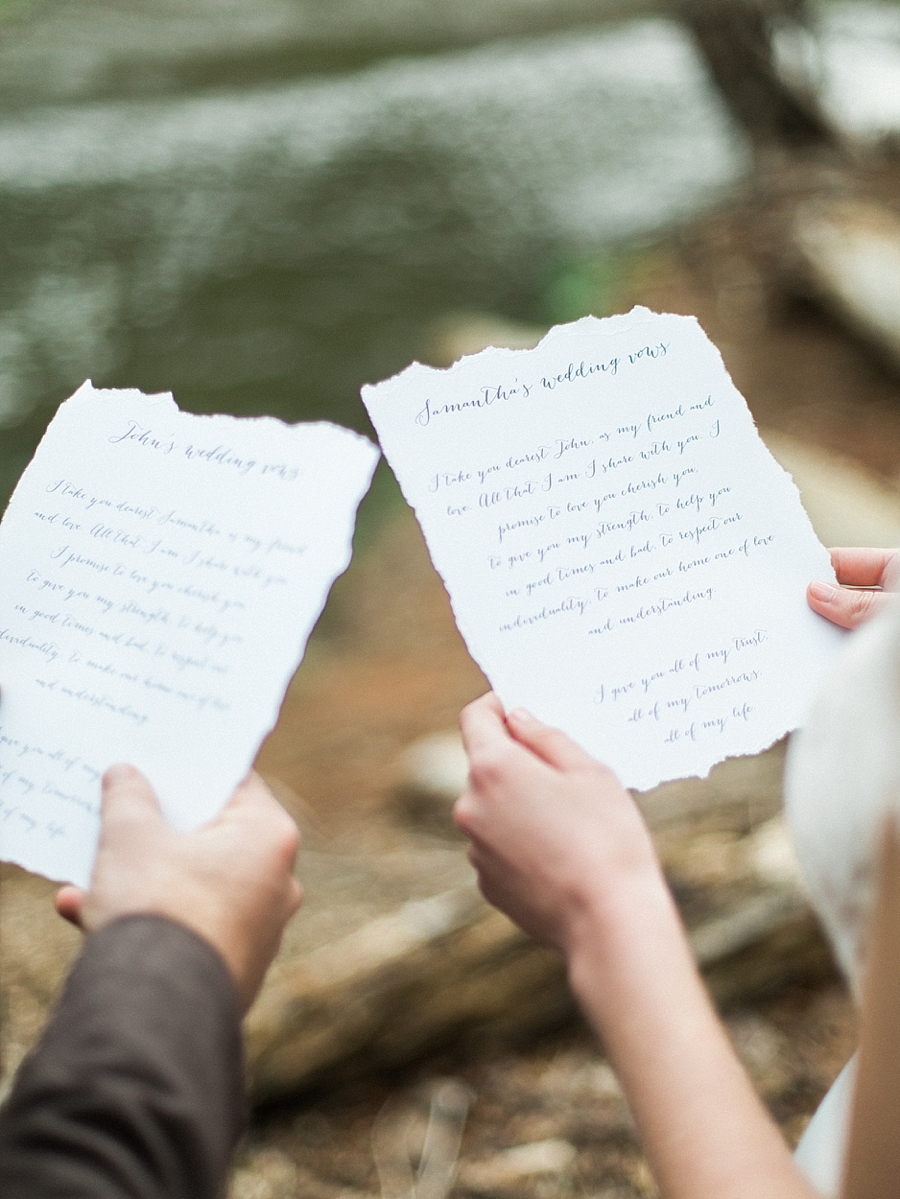 John's wedding vows
I take you dearest Samantha as my friend
and love. All that I am I share with you
I promise to love you cherish you
to give you my strength, to help you
in good times and bad, to respect our
individuality, to make our home one of love
and understanding
give you all of my
of my tomorrows
of my life
Samantha's wedding vows
I take you dearest John, as my friend and
love. All that I am I share with you. I
promise to love you cherish you,
to give you my strength, to help you
in good times and bad, to respect our
individuality, to make our home one of love
and understanding.
I give you all of my trust,
all of my tomorrows,
all of my life